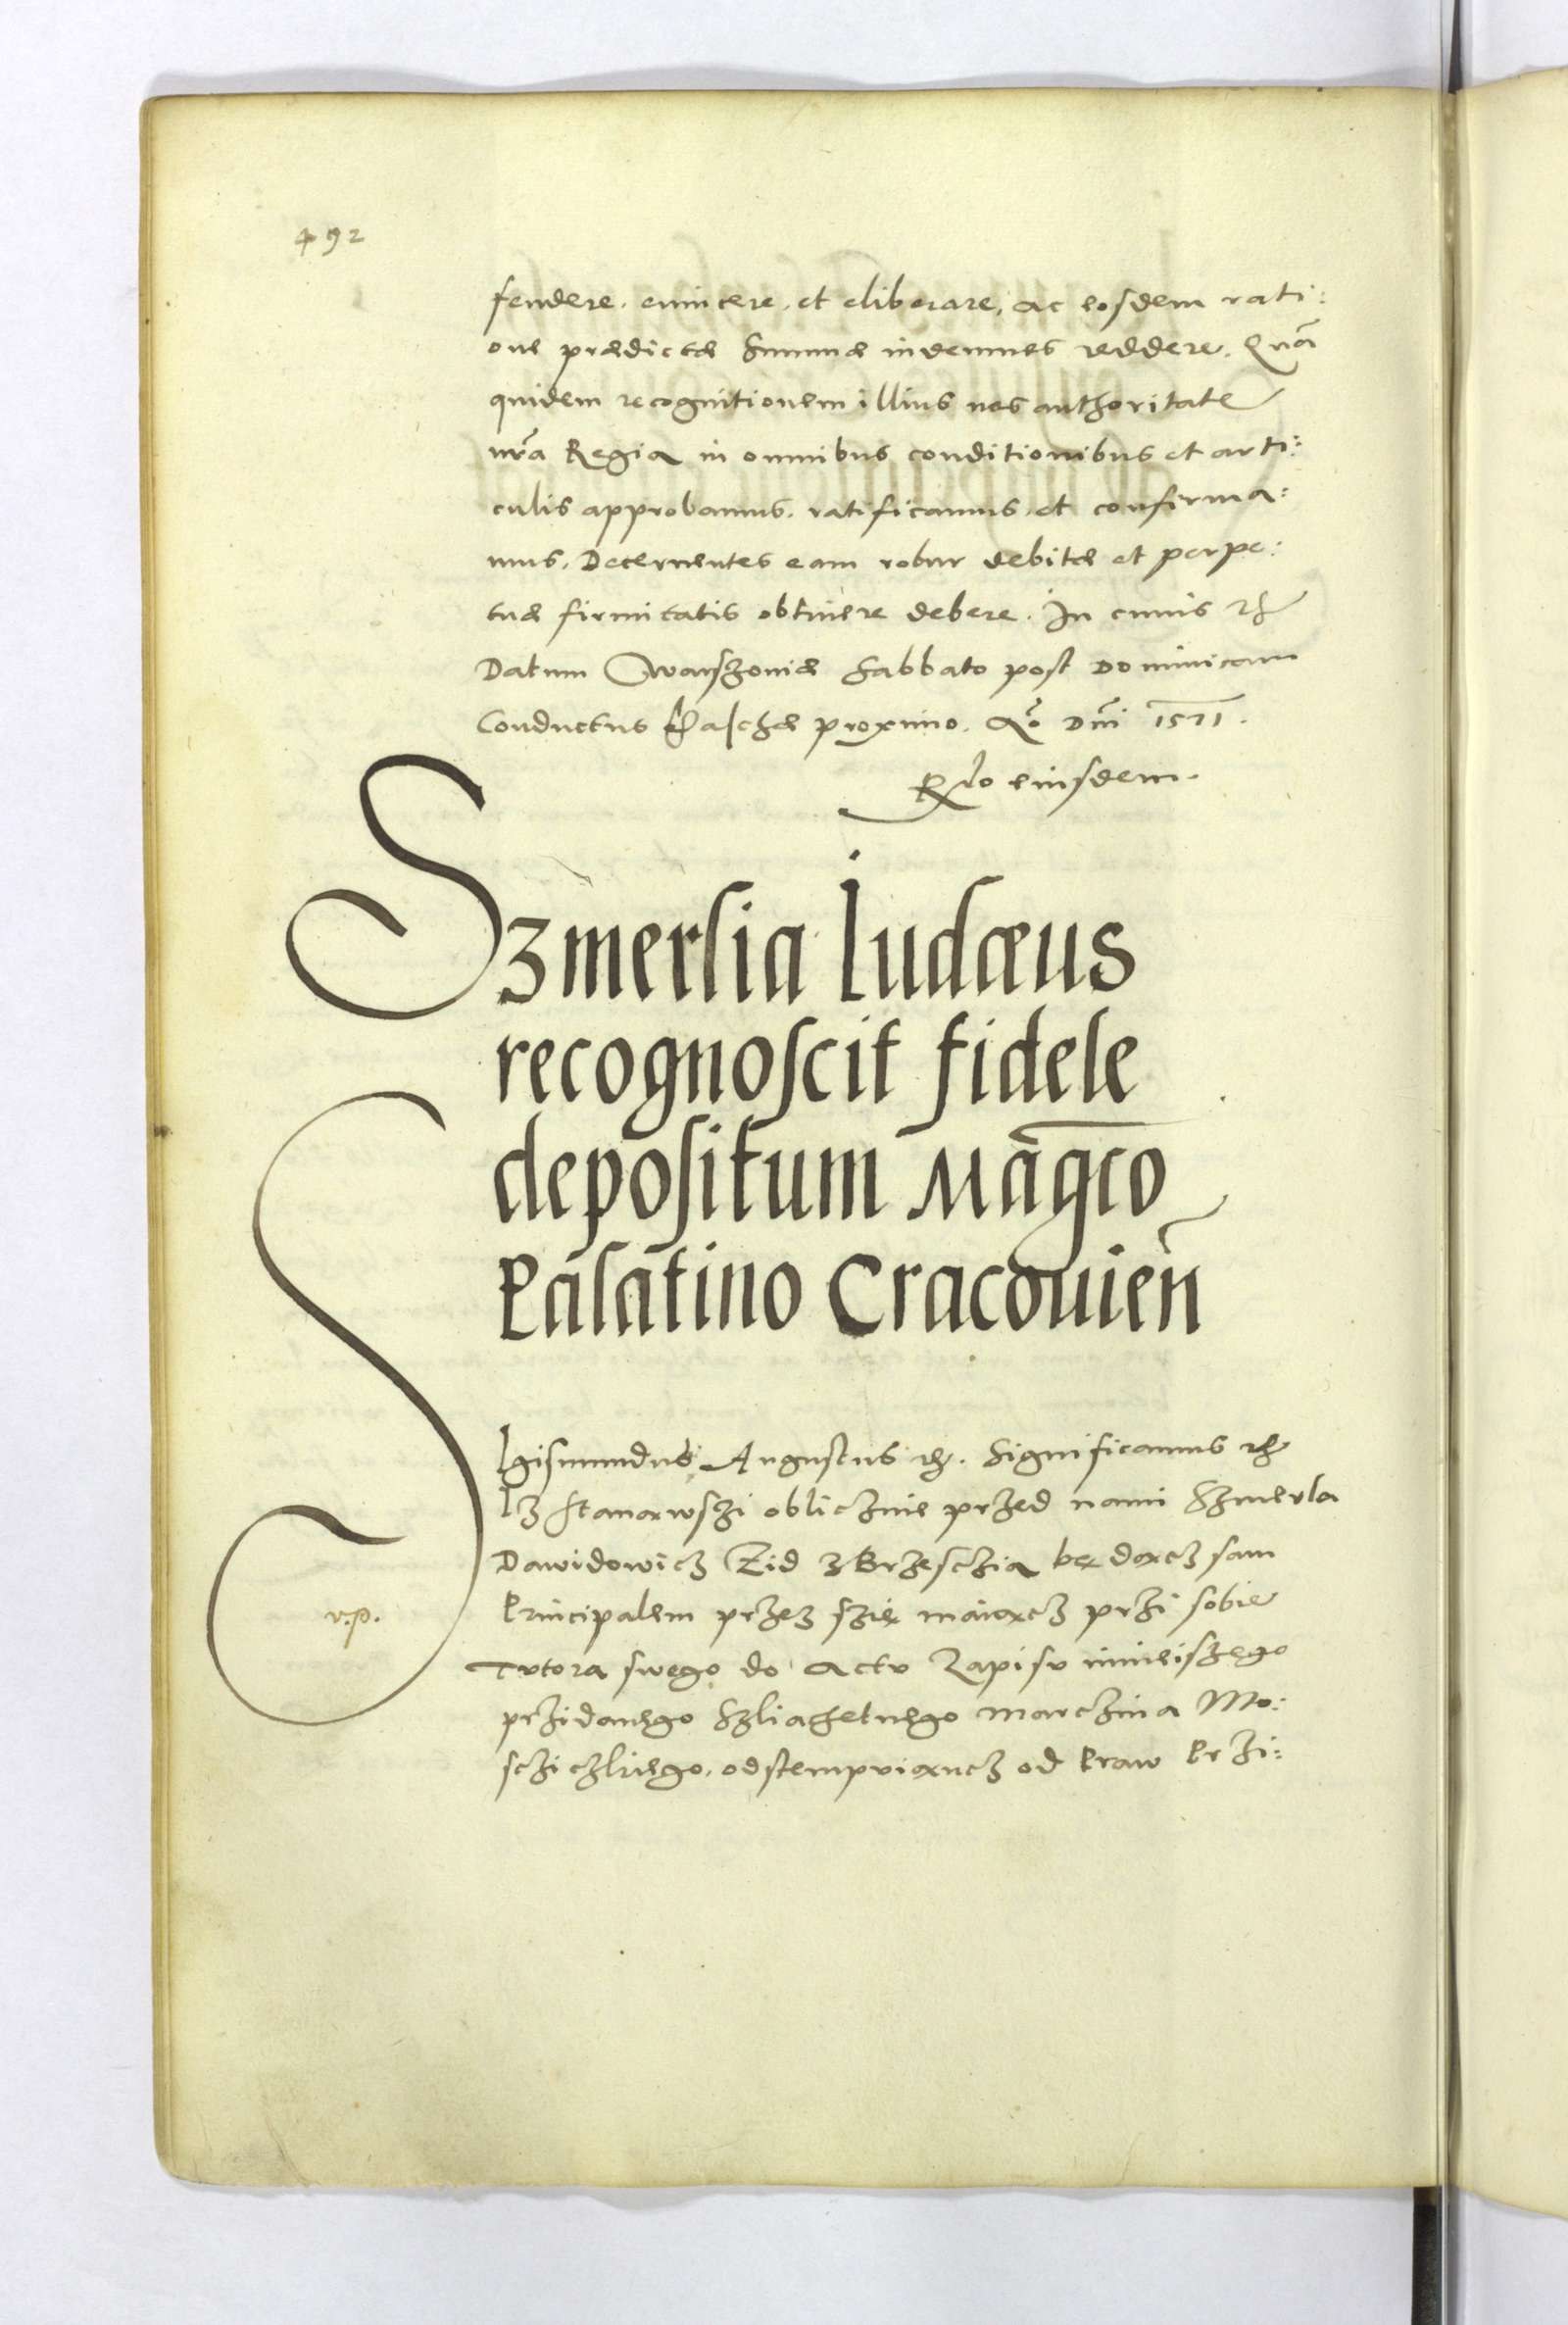 492
fendere. euincere. et eliberare, ac eosdem rati:
one prædictæ summæ indemnes reddere. Quã
quidem recognitionem illius nos authoritate
nr̃a Regia in omnibus conditionibus et arti:
culis approbamus. ratificamus. et confirma:
mus. Decernentes eam robur debitæ et perpe:
tuæ firmitatis obtinere debere. In cuius rei
Datum Warszouiæ Sabbato post Dominicam
Conductus Paschæ proximo. Aº Dñi 1571.
Rlo eiusdem.
Szmerlia Iudæus
recognoscit fidele
depositum Magco
Palatino Cracouien̄
Sigismundus Augustus etc. Significamus etc
Iz stanąwszi oblicznie przed nami Szmerla
Dawidowicz Zid z Brzesczia będącz sam
Principalem przez szię maiącz przi sobie
v.p.
Tutora swego do Actu Zapisu ninieiszego
przidanego Szliachetnego Marczina Mo:
scziczkiego. odstempuiąncz od Praw Przi: